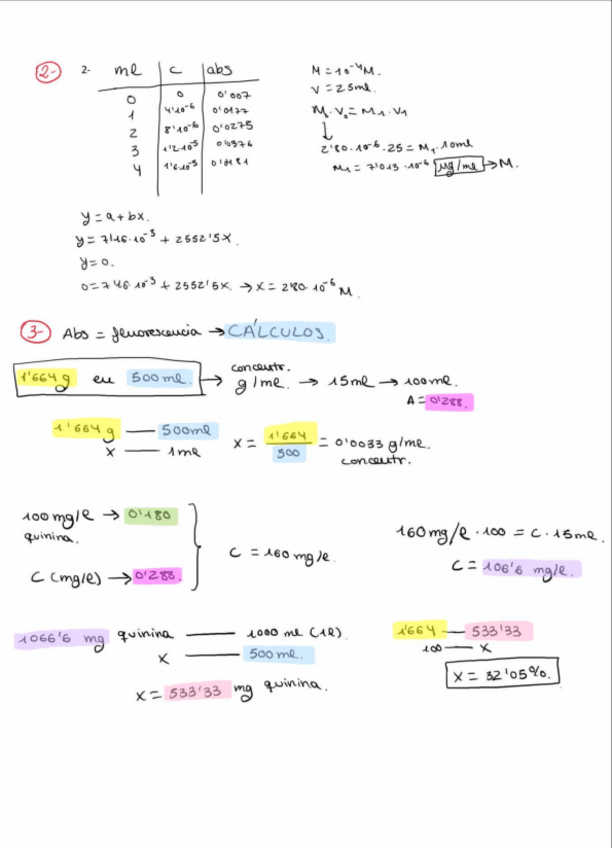 2-
2- ml c abs
0 0 0'007
1 4·10⁻⁶ 0'0177
2 8·10⁻⁶ 0'0275
3 1'2·10⁻⁵ 0'0376
4 1'6·10⁻⁵ 0'0481
M = 10⁻⁴M.
V = 25ml.
M₀·V₀ = M₁·V₁
↓
2'80·10⁻⁶·25 = M₁·10ml
M₁ = 7'013·10⁻⁶ µg/ml → M.
y = a + bx.
y = 7'46·10⁻³ + 2552'5x.
y = 0.
0 = 7'46·10⁻³ + 2552'5x. → x = 2'80·10⁻⁶ M.
3- Abs = fluorescencia → CÁLCULOS.
1'664 g en 500 ml. → concentr. g/ml. → 15ml → 100ml.
A = 0'288.
1'664 g — 500ml
x — 1ml
x = 1'664 / 500 = 0'0033 g/ml.
concentr.
100 mg/l → 0'180
quinina.
C (mg/l) → 0'288.
C = 160 mg/l.
160 mg/l · 100 = C · 15 ml.
C = 106'6 mg/l.
1066'6 mg quinina — 1000 ml (1l).
x — 500 ml.
x = 533'33 mg quinina.
1'664 — 533'33
100 — x
x = 32'05%.